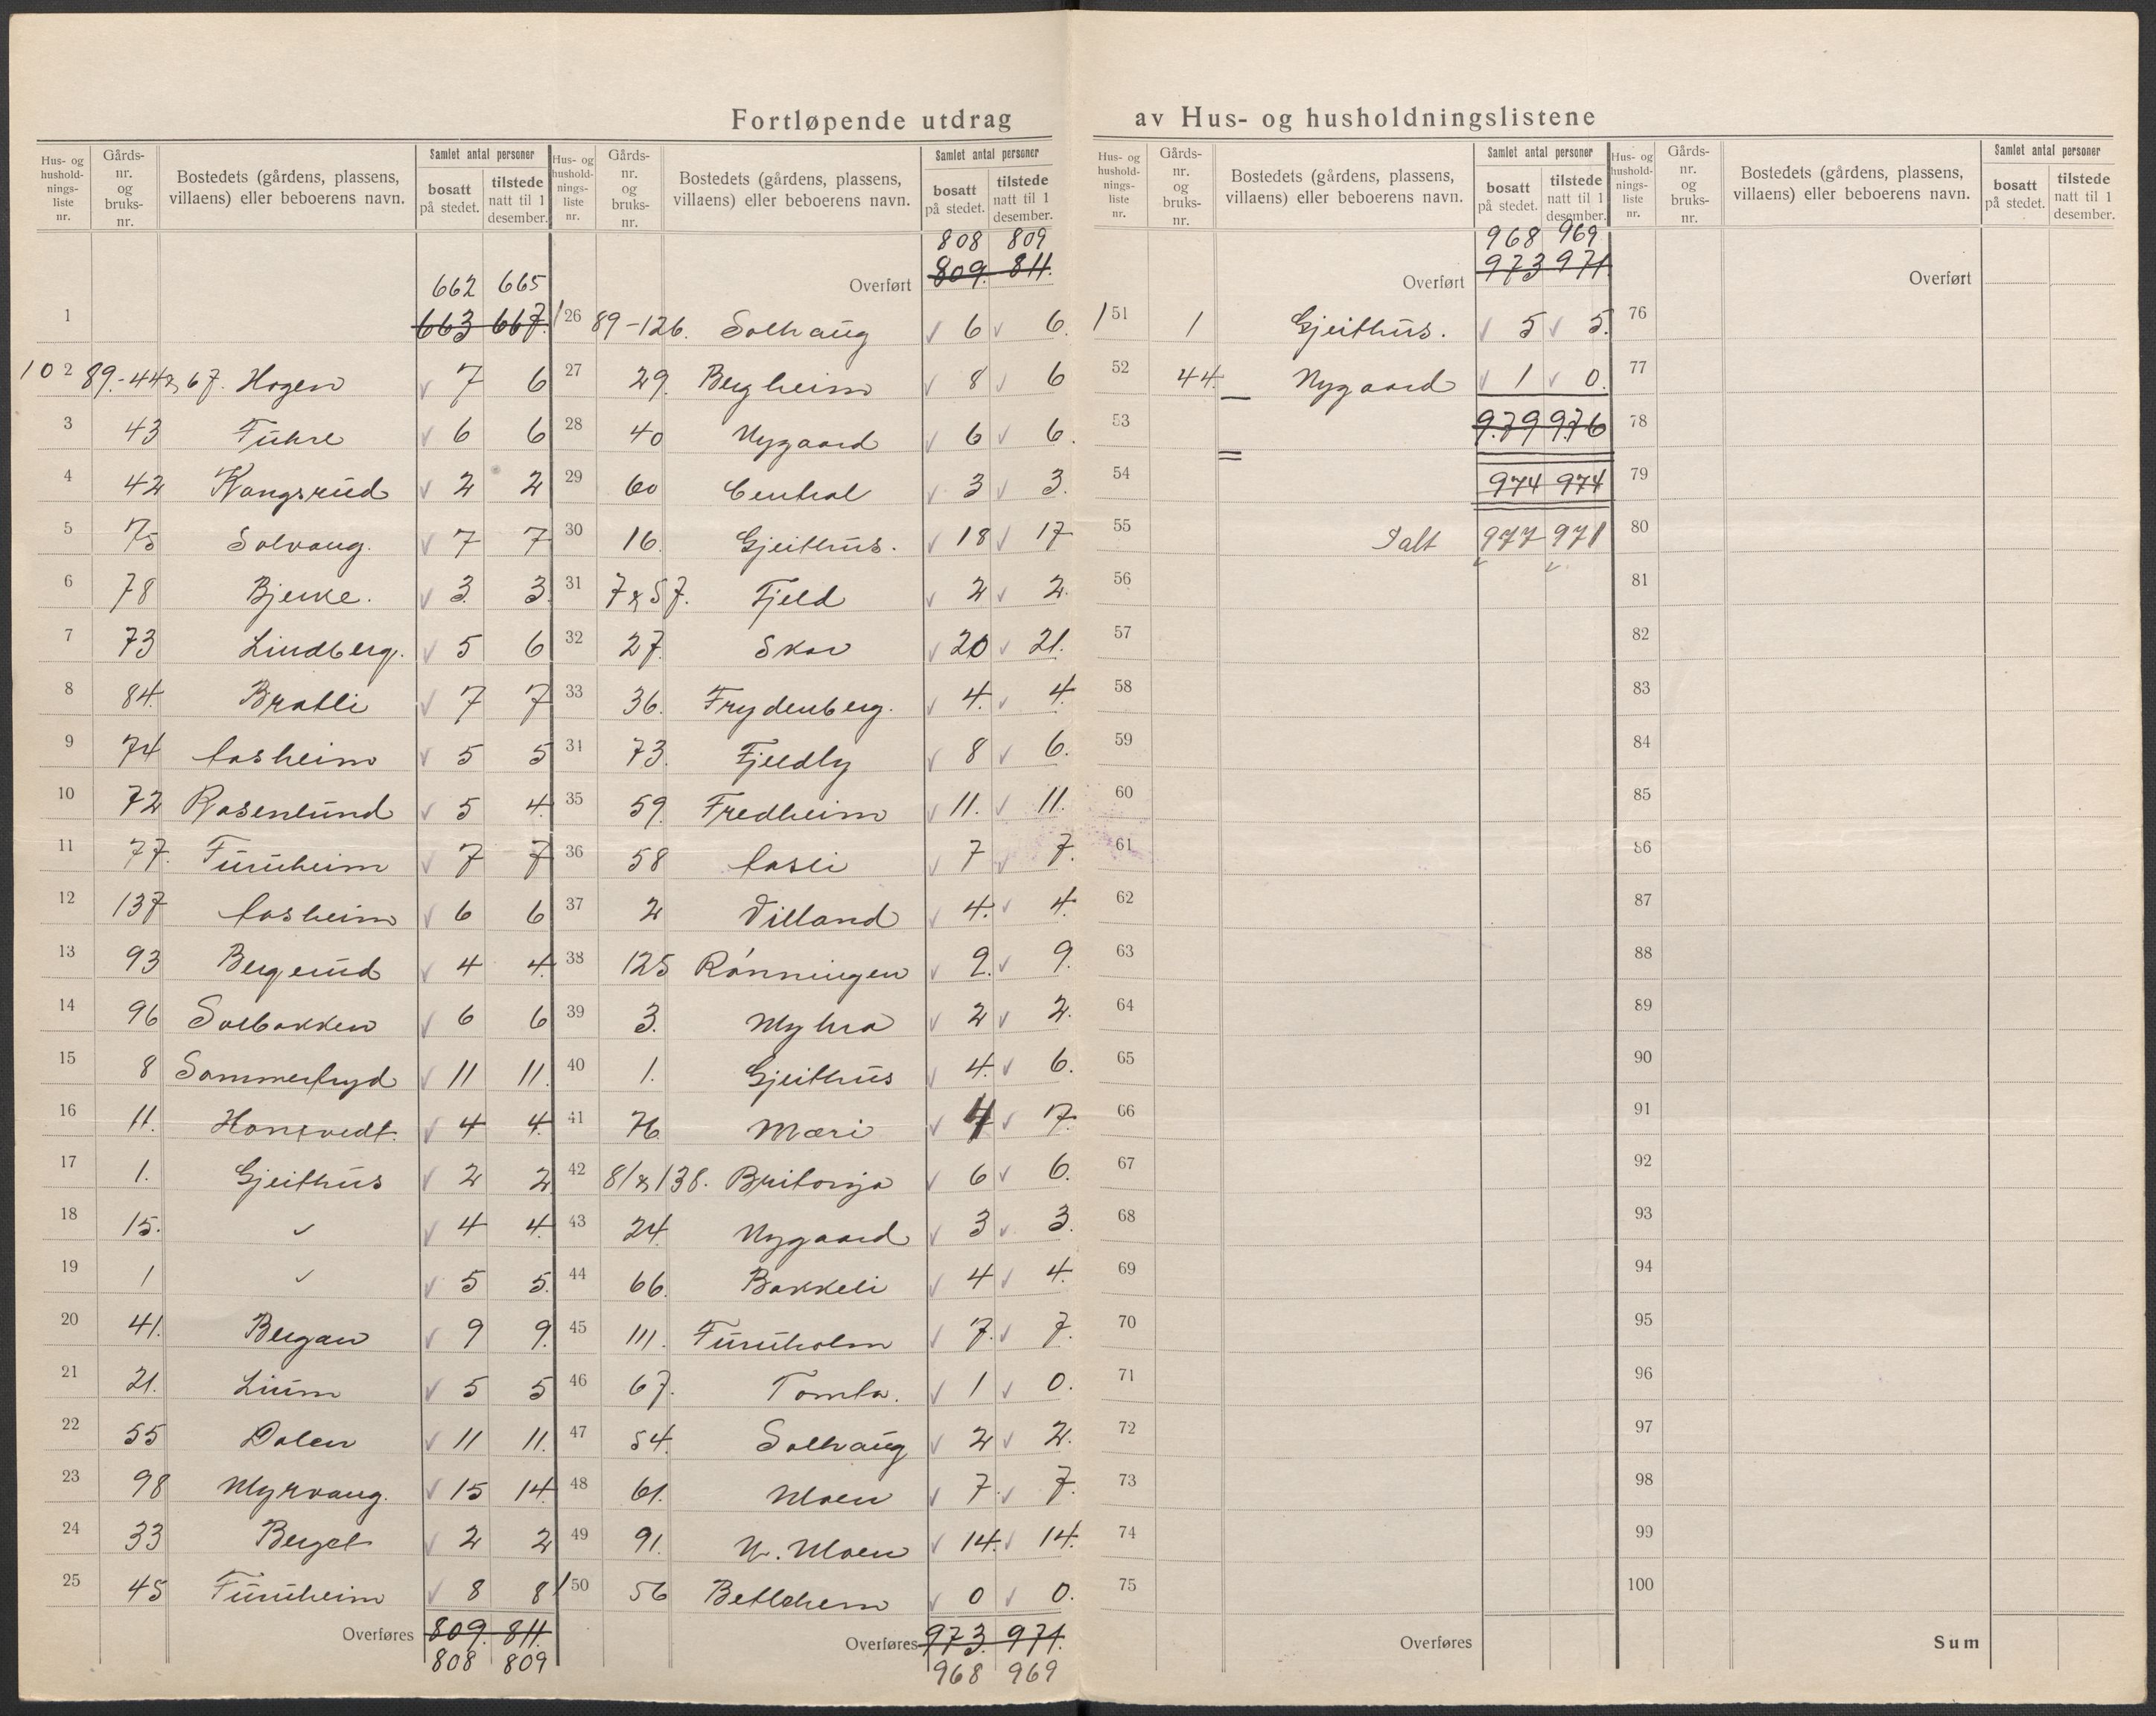 Fortløpende utdrag av Hus- og husholdningslistene
Hus- og husholdnings-liste nr. | Gårds-nr. og bruks-nr. | Bostedets (gårdens, plassens, villaens) eller beboerens navn. | Samlet antal personer | bosatt på stedet. | tilstede natt til 1 desember.
662 665
1 663 667.
102 89.-44 & 67. Hagen 7 6
3 43 Fuhre 6 6
4 42 Kongsrud 2 2
5 75 Solvang. 7 7
6 78 Bjerke. 3 3
7 73 Lindberg. 5 6
8 84. Bratli 7 7
9 74 Aasheim 5 5
10 72 Rosenlund 5 4.
11 77. Furuheim 7 7
12 137 Aasheim 6 6
13 93 Bergerud 4 4.
14 96 Solbakken 6 6
15 8 Sommerfryd 11 11.
16 11. Hansvedt. 4 4.
17 1. Gjeithus 2 2
18 15. 4 4.
19 1 5 5.
20 41. Bergan 9 9.
21 21. Lium 5 5
22 55 Dalen 11 11.
23 98 Myrvang. 15 14.
24 33 Berget 2 2
25 45 Furuheim 8 8
Overføres 809. 811.
808 809
Hus- og husholdnings-liste nr. | Gårds-nr. og bruks-nr. | Bostedets (gårdens, plassens, villaens) eller beboerens navn. | Samlet antal personer | bosatt på stedet. | tilstede natt til 1 desember.
808 809
Overført 809. 811.
126 89-126. Solhaug 6 6.
27 29. Bergheim 8 6
28 40 Nygaard 6 6.
29 60 Central 3 3.
30 16. Gjeithus. 18 17
31 7 & 57. Fjeld 2 2.
32 27. Skar 20 21.
33 36. Frydenberg. 4. 4.
31 73. Fjeldly 8 6.
35 59. Fredheim 11. 11.
36 58 Aasli 7 7.
37 2 Villand 4. 4.
38 125 Rønningen 9. 9.
39 3. Myhra 2 2.
40 1. Gjeithus 4. 6.
41 76. Mæri 17.
42 81 & 138. Britonja 6 6.
43 24. Nygaard 3 3.
44 66. Bakkeli 4 4.
45 111. Furuholm 7. 7.
46 67. Tomta. 1 0.
47 54. Solhaug 2 2.
48 61. Moen 7. 7.
49 91. N. Moen 14. 14.
150 56 Betlehem 0 0.
Overføres 973. 971.
968 969
Hus- og husholdnings-liste nr. | Gårds-nr. og bruks-nr. | Bostedets (gårdens, plassens, villaens) eller beboerens navn. | Samlet antal personer | bosatt på stedet. | tilstede natt til 1 desember.
968 969
Overført 973 971.
151 1 Gjeithus. 5 5.
52 44. Nygaard 1 0.
53 979 976
54 974 974
55 Ialt 977 971
56
57
58
59
60
61
62
63
64
65
66
67
68
69
70
71
72
73
74
75
Overføres
Hus- og husholdnings-liste nr. | Gårds-nr. og bruks-nr. | Bostedets (gårdens, plassens, villaens) eller beboerens navn. | Samlet antal personer | bosatt på stedet. | tilstede natt til 1 desember.
Overført
76
77
78
79
80
81
82
83
84
85
86
87
88
89
90
91
92
93
94
95
96
97
98
99
100
Sum